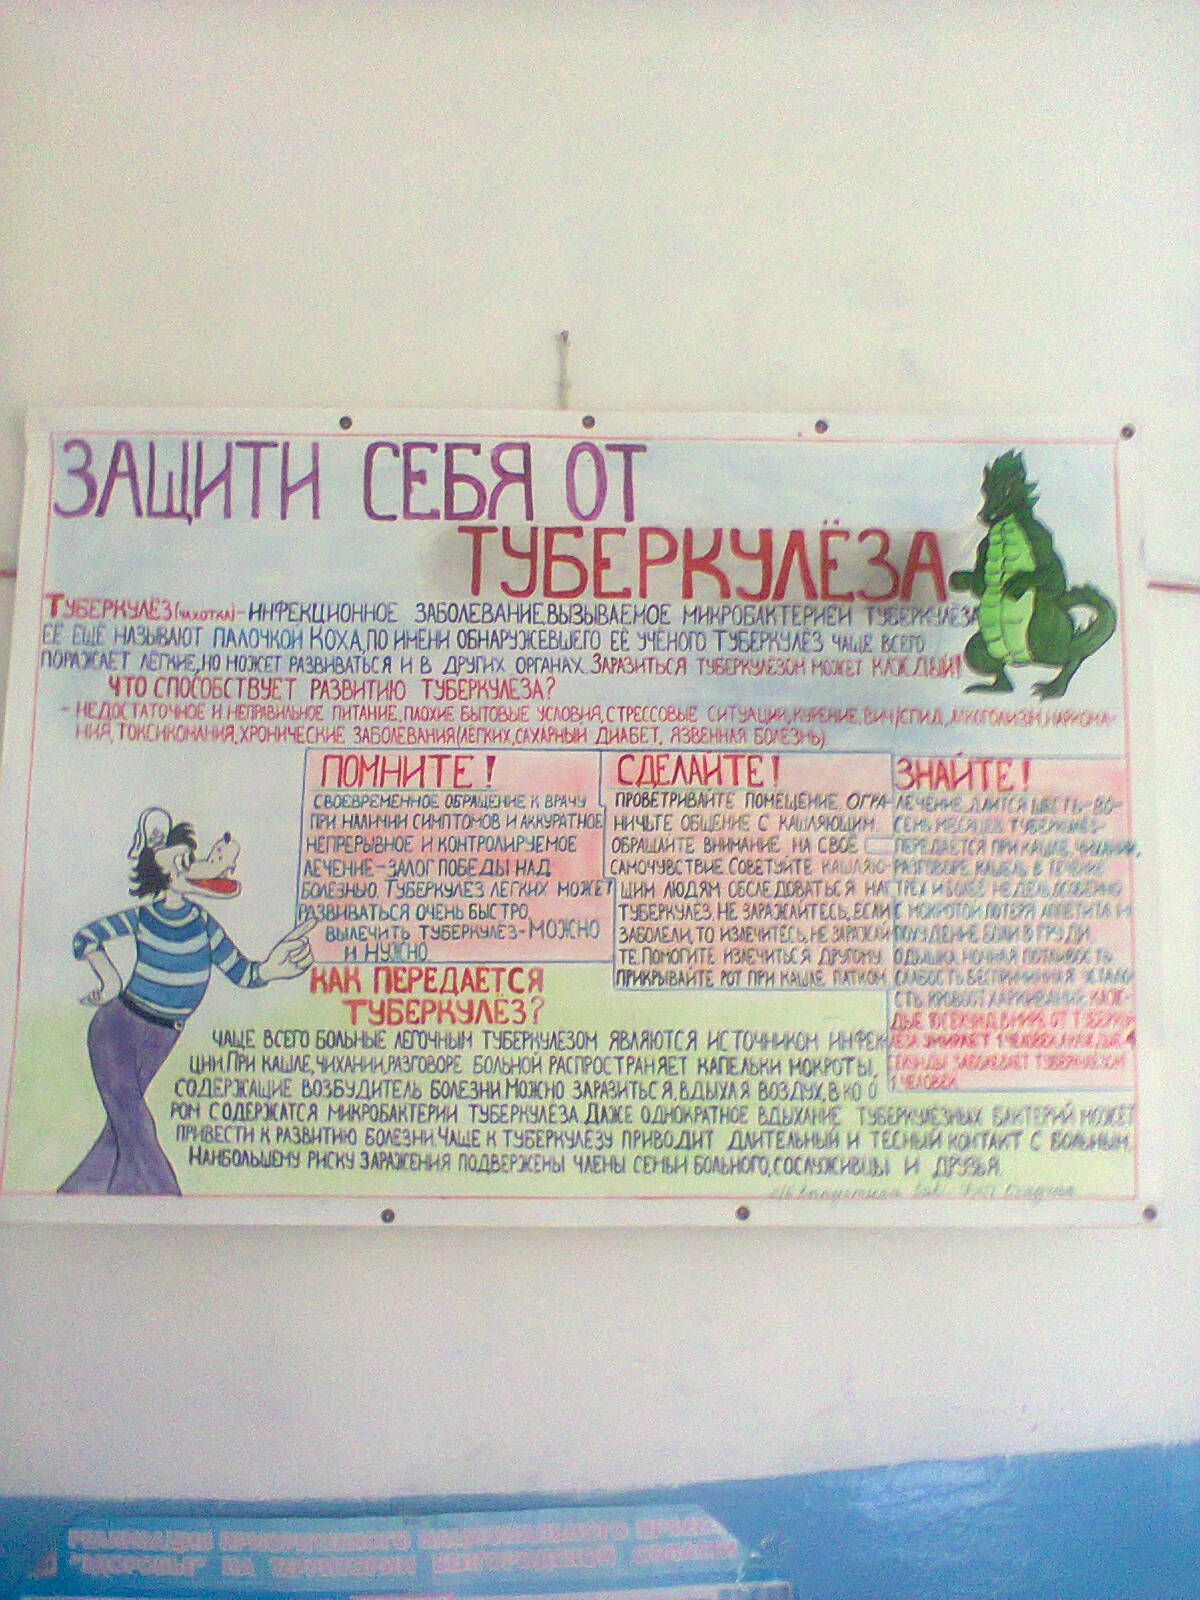 ЗАЩИТИ СЕБЯ ОТ
ТУБЕРКУЛЁЗА
ТУБЕРКУЛЁЗ(ЧАХОТКА)-ИНФЕКЦИОННОЕ ЗАБОЛЕВАНИЕ,ВЫЗЫВАЕМОЕ МИКРОБАКТЕРИЕЙ ТУБЕРКУЛЁЗА
ЕЁ ЕЩЁ НАЗЫВАЮТ ПАЛОЧКОЙ КОХА,ПО ИМЕНИ ОБНАРУЖЕВШЕГО ЕЁ УЧЁНОГО ТУБЕРКУЛЁЗ ЧАЩЕ ВСЕГО
ПОРАЖАЕТ ЛЁГКИЕ,НО МОЖЕТ РАЗВИВАТЬСЯ И В ДРУГИХ ОРГАНАХ. ЗАРАЗИТЬСЯ ТУБЕРКУЛЁЗОМ МОЖЕТ КАЖДЫЙ!
ЧТО СПОСОБСТВУЕТ РАЗВИТИЮ ТУБЕРКУЛЁЗА?
- НЕДОСТАТОЧНОЕ И НЕПРАВИЛЬНОЕ ПИТАНИЕ,ПЛОХИЕ БЫТОВЫЕ УСЛОВИЯ,СТРЕССОВЫЕ СИТУАЦИИ,КУРЕНИЕ,ВИЧ/СПИД,АЛКОГОЛИЗМ,НАРКОМА-
НИЯ,ТОКСИКОМАНИЯ,ХРОНИЧЕСКИЕ ЗАБОЛЕВАНИЯ(ЛЁГКИХ,САХАРНЫЙ ДИАБЕТ, ЯЗВЕННАЯ БОЛЕЗНЬ).
ПОМНИТЕ!
СВОЕВРЕМЕННОЕ ОБРАЩЕНИЕ К ВРАЧУ
ПРИ НАЛИЧИИ СИМПТОМОВ И АККУРАТНОЕ
НЕПРЕРЫВНОЕ И КОНТРОЛИРУЕМОЕ
ЛЕЧЕНИЕ-ЗАЛОГ ПОБЕДЫ НАД
БОЛЕЗНЬЮ. ТУБЕРКУЛЁЗ ЛЁГКИХ МОЖЕТ
РАЗВИВАТЬСЯ ОЧЕНЬ БЫСТРО.
ВЫЛЕЧИТЬ ТУБЕРКУЛЁЗ-МОЖНО
И НУЖНО.
СДЕЛАЙТЕ!
ПРОВЕТРИВАЙТЕ ПОМЕЩЕНИЕ. ОГРА-
НИЧЬТЕ ОБЩЕНИЕ С КАШЛЯЮЩИМ.
ОБРАЩАЙТЕ ВНИМАНИЕ НА СВОЁ
САМОЧУВСТВИЕ.СОВЕТУЙТЕ КАШЛЯЮ-
ЩИМ ЛЮДЯМ ОБСЛЕДОВАТЬСЯ НА
ТУБЕРКУЛЁЗ. НЕ ЗАРАЖАЙТЕСЬ, ЕСЛИ
ЗАБОЛЕЛИ,ТО ИЗЛЕЧИТЕСЬ, НЕ ЗАРАЖАЙ
ТЕ.ПОМОГИТЕ ИЗЛЕЧИТЬСЯ ДРУГОМУ.
ПРИКРЫВАЙТЕ РОТ ПРИ КАШЛЕ ПЛАТКОМ
ЗНАЙТЕ!
ЛЕЧЕНИЕ ДЛИТСЯ ШЕСТЬ-ВО-
СЕМЬ МЕСЯЦЕВ ТУБЕРКУЛЁЗ-
ПЕРЕДАЁТСЯ ПРИ КАШЛЕ, ЧИХАНИИ,
РАЗГОВОРЕ. КАШЕЛЬ В ТЕЧЕНИЕ
ТРЁХ И БОЛЕЕ НЕДЕЛЬ,ОСОБЕННО
С МОКРОТОЙ.ПОТЕРЯ АППЕТИТА И
ПОХУДЕНИЕ.БОЛИ В ГРУДИ.
ОДЫШКА. НОЧНАЯ ПОТЛИВОСТЬ.
СЛАБОСТЬ,БЕСПРИЧИННАЯ УСТАЛО
СТЬ. КРОВОХАРКИВАНИЕ. КАЖ-
ДЫЕ СЕКУНД В МИРЕ ОТ ТУБЕРКУ-
ЛЁЗА УМИРАЕТ 1 ЧЕЛОВЕК,КАЖДЫЕ 4
СЕКУНДЫ ЗАБОЛЕВАЕТ ТУБЕРКУЛЁЗОМ
1 ЧЕЛОВЕК.
КАК ПЕРЕДАЁТСЯ
ТУБЕРКУЛЁЗ?
ЧАЩЕ ВСЕГО БОЛЬНЫЕ ЛЕГОЧНЫМ ТУБЕРКУЛЁЗОМ ЯВЛЯЮТСЯ ИСТОЧНИКОМ ИНФЕК
ЦИИ.ПРИ КАШЛЕ,ЧИХАНИИ,РАЗГОВОРЕ БОЛЬНОЙ РАСПРОСТРАНЯЕТ КАПЕЛЬКИ МОКРОТЫ,
СОДЕРЖАЩИЕ ВОЗБУДИТЕЛЬ БОЛЕЗНИ.МОЖНО ЗАРАЗИТЬСЯ,ВДЫХАЯ ВОЗДУХ,В КО О
РОМ СОДЕРЖАТСЯ МИКРОБАКТЕРИИ ТУБЕРКУЛЁЗА.ДАЖЕ ОДНОКРАТНОЕ ВДЫХАНИЕ ТУБЕРКУЛЁЗНЫХ БАКТЕРИЙ МОЖЕТ
ПРИВЕСТИ К РАЗВИТИЮ БОЛЕЗНИ.ЧАЩЕ К ТУБЕРКУЛЁЗУ ПРИВОДИТ ДЛИТЕЛЬНЫЙ И ТЕСНЫЙ КОНТАКТ С БОЛЬНЫМ.
НАИБОЛЬШЕМУ РИСКУ ЗАРАЖЕНИЯ ПОДВЕРЖЕНЫ ЧЛЕНЫ СЕМЬИ БОЛЬНОГО,СОСЛУЖИВЦЫ И ДРУЗЬЯ.